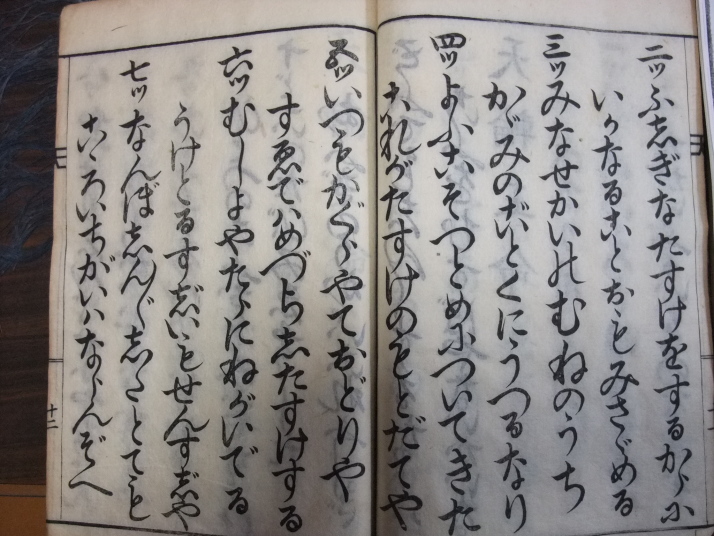 二ッふしぎなたすけをするからに
いかなることおもみさだめる
三ッみなせかいのむねのうち
かがみのごとくにうつるなり
四ッよふこそつとめについてきた
これがたすけのもとだてや
五ッいつもかぐらやておどりや
すゑでハめづらしたすけする
六ッむしよやたらにねがいでる
うけとるすぢいもせんすぢや
七ッなんぼしん〲したとても
こゝろいちがいハならんぞへ
十二